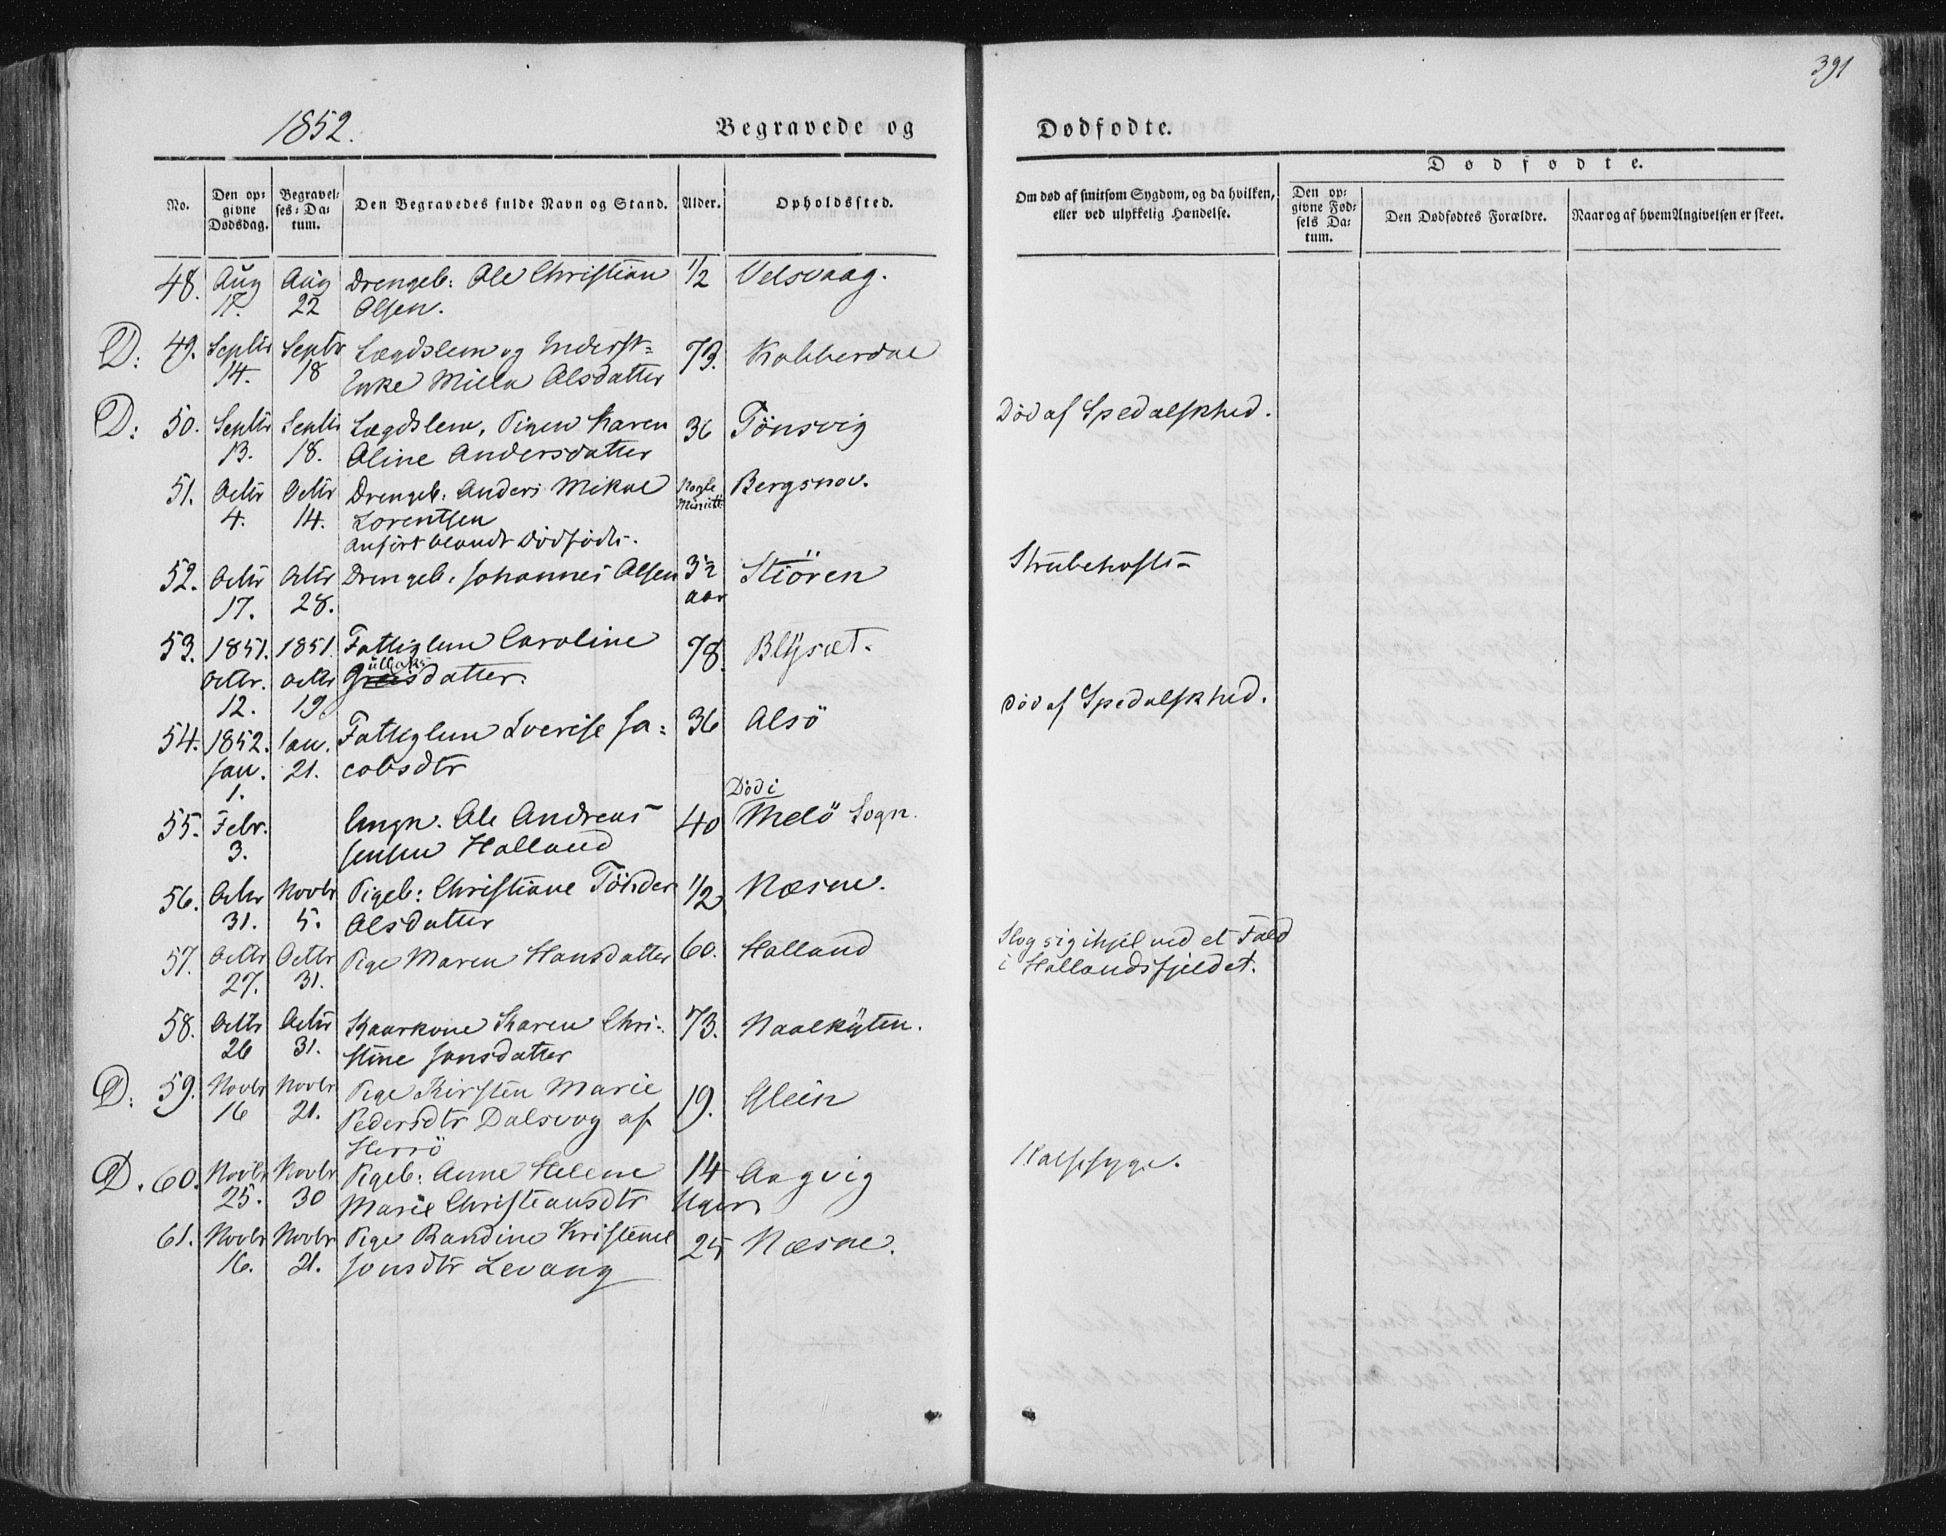 391
1852.
Begravede og Dødfødte.
Dødfødte.
No.
Den opgivne Dødsdag.
Begravelses-Datum.
Den Begravedes fulde Navn og Stand.
Alder.
Opholdssted.
Om død af smitsom Sygdom, og da hvilken, eller ved ulykkelig Hændelse.
Den opgivne Fødsels Datum.
Den Dødfødtes Forældre.
Naar og af hvem Angivelsen er skeet.
48. Aug 17. Aug 22 Drengeb: Ole Christian 1/2 Velsvaag.
Olsen.
D: 49. Septbr 14. Septbr 18 Lægdslem og Inderst- 73. Kobberdal
Enke Milla Olsdatter
D: 50. Septbr 13. Septbr 18. Lægdslem, Pigen Karen 36 Tönsvig Död af Spedalskhed.
Aline Andersdatter
51. Octbr 4. Octbr 14. Drengeb: Anders Mikal Nogle Minutt Bergsnov.
Lorentsen
anfört blandt Dödfödte.
52. Octbr 17. Octbr 28. Drengeb: Johannes Olsen 3 1/2 aar Stiören Strubehoste
53. 1851. Octbr. 12. 1851. Octbr 19 Fattiglem Caroline 78. Blÿsæt.
Gullaksdatter.
54. 1852. Jan. 1. Jan. 21. Fattiglem Lovise Ja- 36 Alsö Död af Spedalskhed.
cobsdtr
55. Febr. 3. Ungk. Ole Andreas 40 Död i Melö Sogn.
Jensen Halland
56. Octbr 31. Novbr 5. Pigeb: Christiane Tönder 1/2 Næsne.
Olsdatter
57. Octbr 27. Octbr 31. Pige Maren Hansdatter 60. Halland Slog sig ihjel ved et Fald
i Hallandsfjeldet.
58. Octbr 26 Octbr 31. Kaarkone Karen Chri- 73. Naalsküten.
stine Jonsdatter
D: 59. Novbr 16 Novbr 21. Pige Kirsten Marie 19. Glein
Pedersdtr Dalsvog af
Herrö
D. 60. Novbr 25. Novbr 30 Pigeb: Anne Helene 14 Uger Aagvig Halssyge.
Marie Christiansdtr
61. Novbr 16. Novbr 21. Pige Randine Kristine 25 Næsne.
Jonsdtr Levang